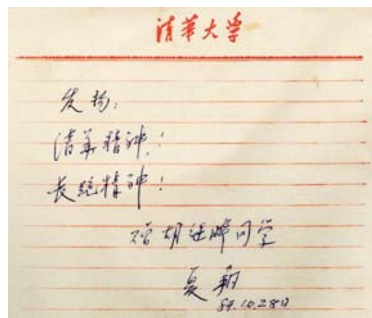 清华大学
发扬：
清华精神！
长跑精神！
赠胡廷晖同学
夏翔
89.10.28日